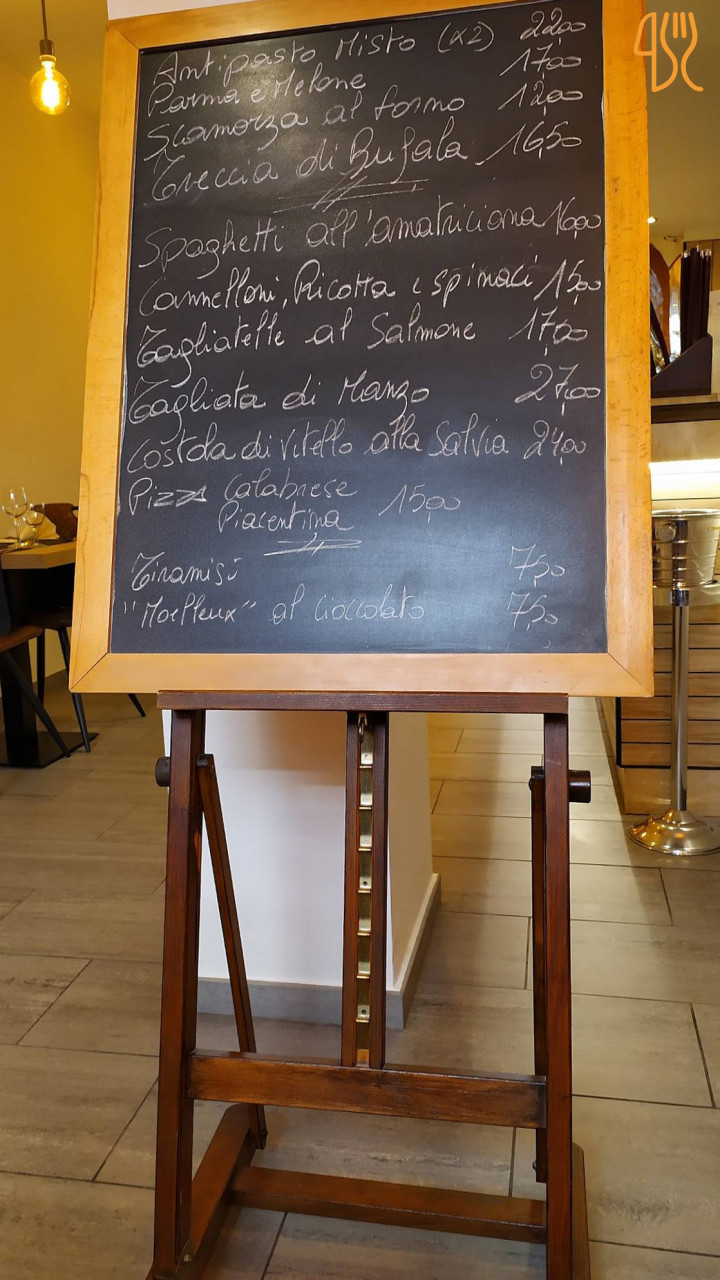 Antipasto Misto (x2) 22,00
Parma e Melone 17,00
Scamorza al forno 12,00
Treccia di Bufala 16,50
Spaghetti all'amatriciana 16,00
Cannelloni, Ricotta e spinaci 15,00
Tagliatelle al Salmone 17,00
Tagliata di Manzo 27,00
Costola di Vitello alla Salvia 24,00
Pizza Calabrese 15,00
Piacentina
Tiramisù 7,50
"Moelleux" al cioccolato 7,50